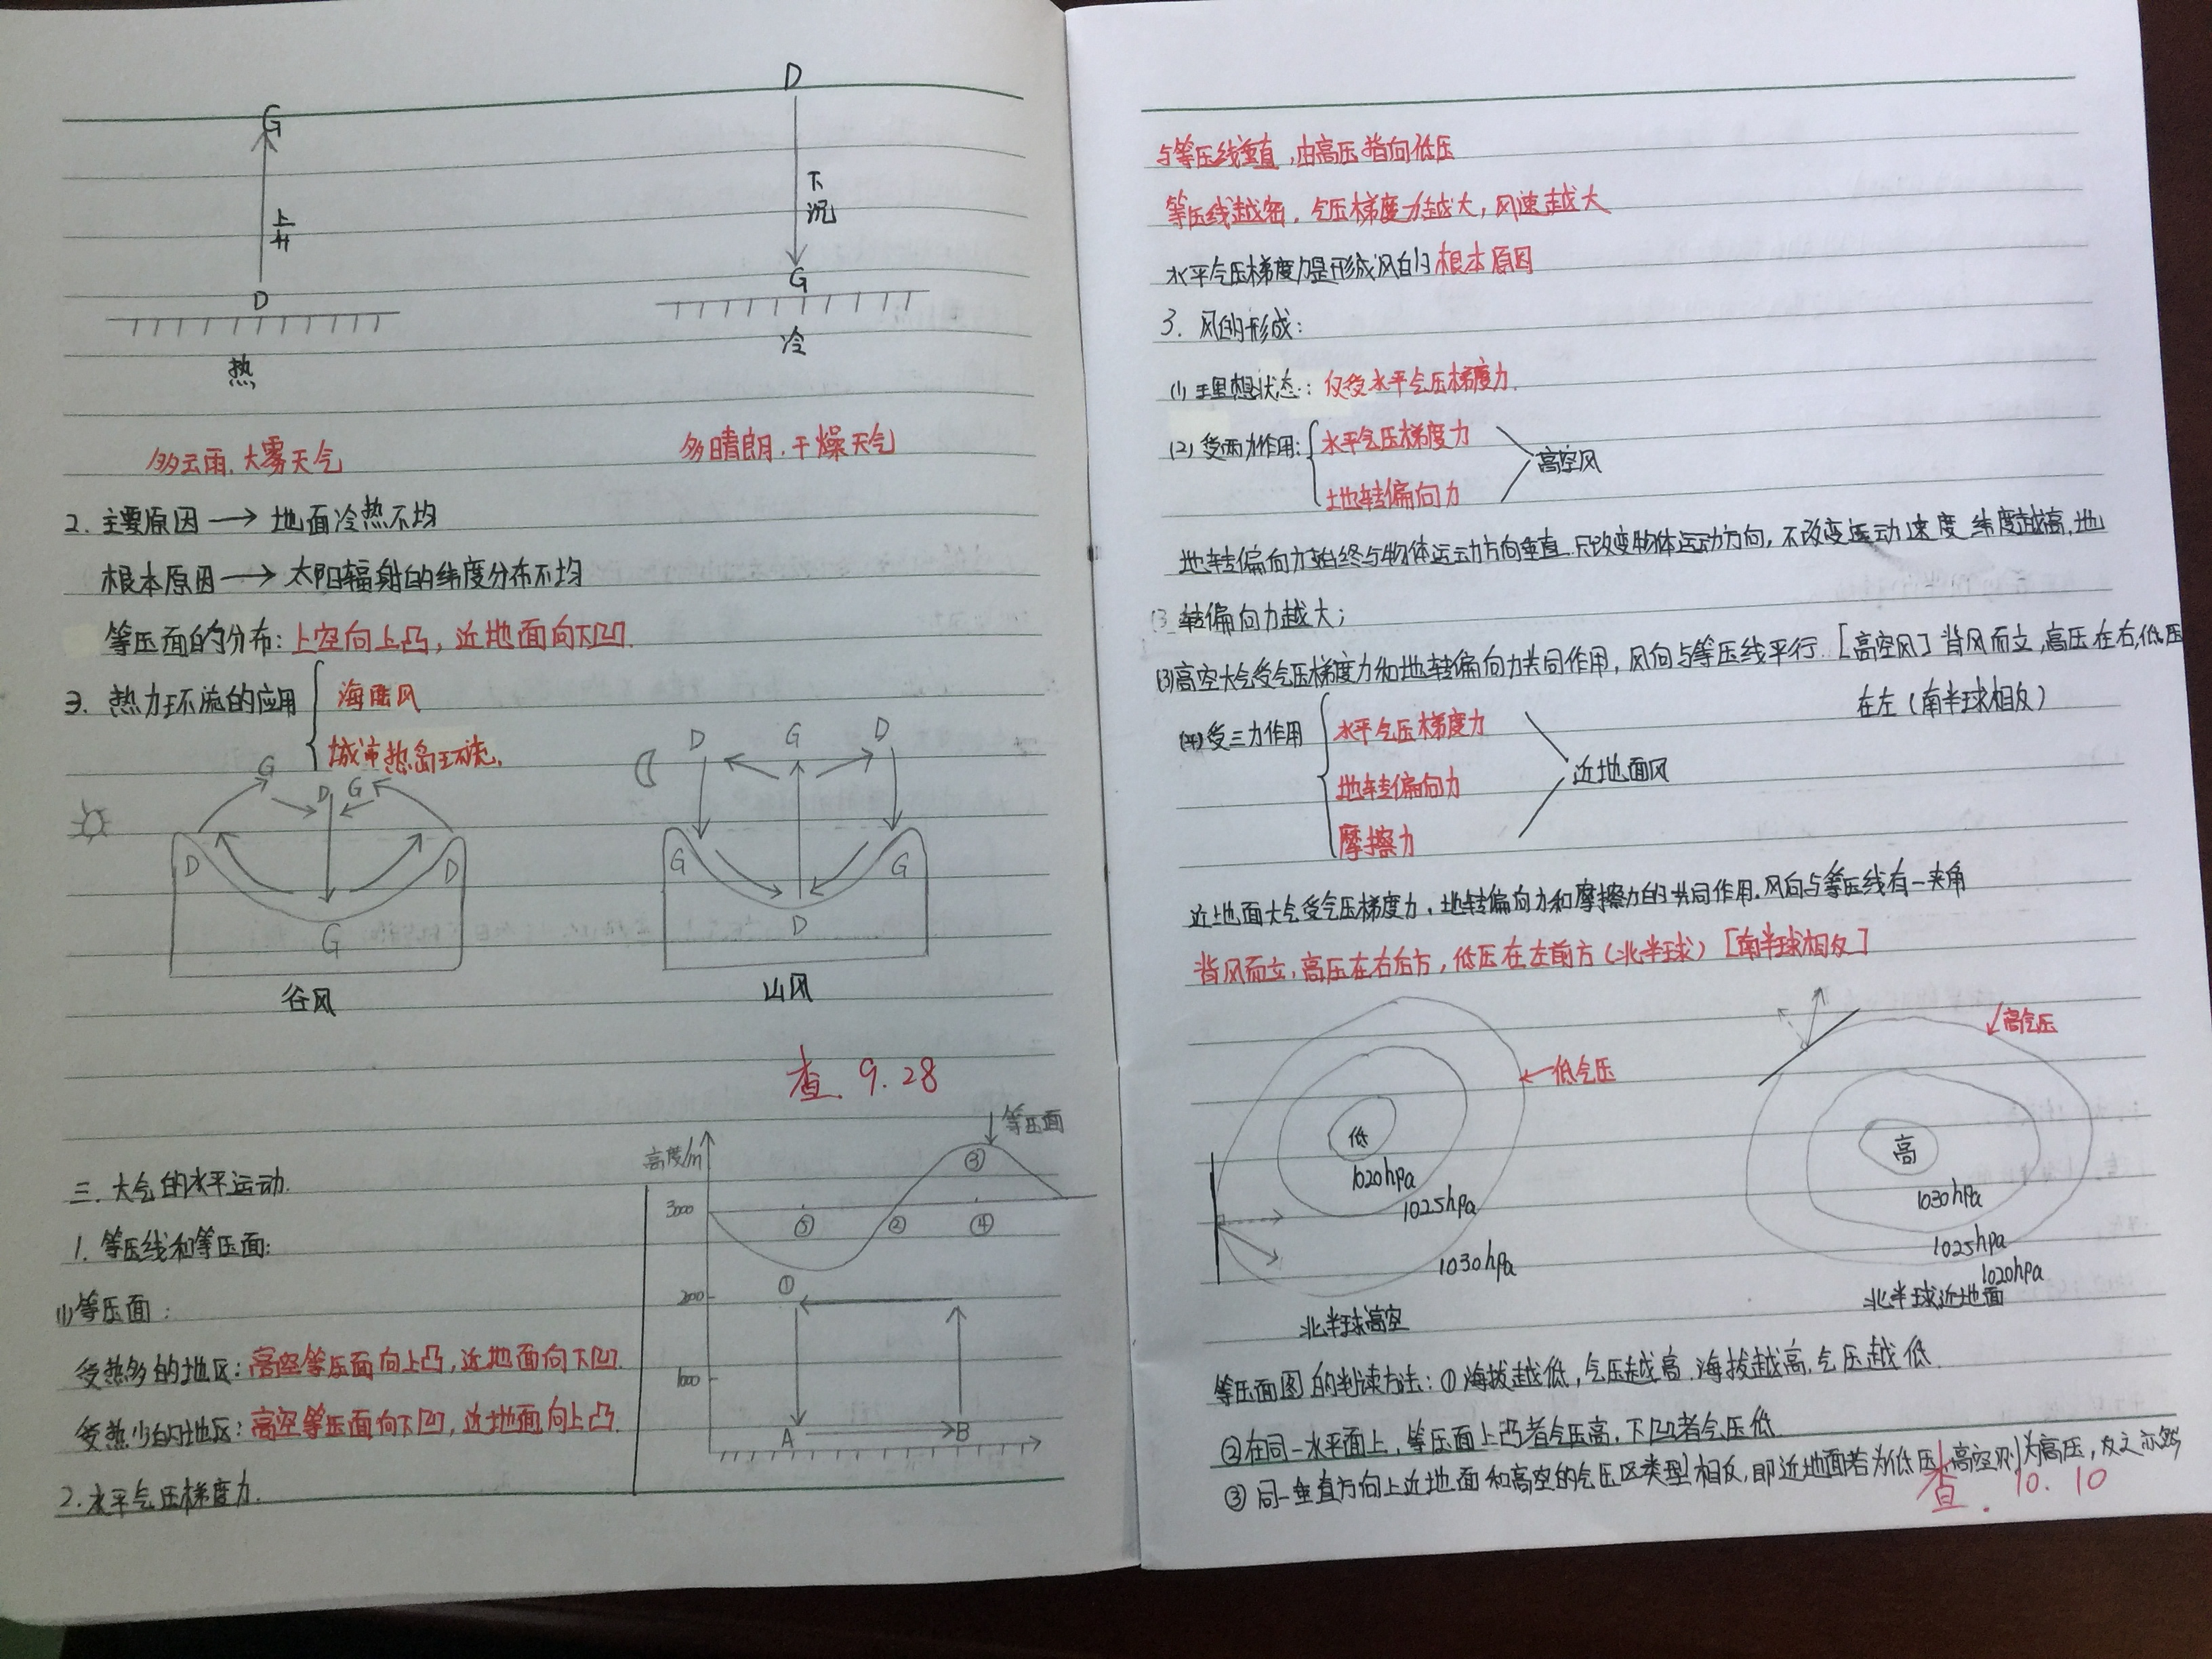 G
D
上升
下沉
D
G
热
冷
多云雨,大雾天气
多晴朗,干燥天气
2. 主要原因→地面冷热不均
根本原因→太阳辐射的纬度分布不均
等压面的分布:上空向上凸,近地面向下凹.
3. 热力环流的应用
海陆风
城市热岛环流.
G D G
D D
G
谷风
D G D
G G
D
山风
查. 9.28
三. 大气的水平运动.
1. 等压线和等压面:
(1)等压面:
受热多的地区:高空等压面向上凸,近地面向下凹.
受热少的地区:高空等压面向下凹,近地面向上凸.
2. 水平气压梯度力.
高度/m
等压面
③
3000
⑤ ② ④
①
2000
1000
A B
与等压线垂直,由高压指向低压
等压线越密,气压梯度力越大,风速越大
水平气压梯度力是形成风的根本原因
3. 风的形成:
(1)理想状态:仅受水平气压梯度力.
(2)受两力作用:
水平气压梯度力
地转偏向力
高空风
地转偏向力始终与物体运动方向垂直.只改变物体运动方向,不改变运动速度.纬度越高,地
转偏向力越大;
(3)高空大气受气压梯度力和地转偏向力共同作用,风向与等压线平行.[高空风]背风而立,高压在右,低压
在左(南半球相反)
(4)受三力作用
水平气压梯度力
地转偏向力
摩擦力
近地面风
近地面大气受气压梯度力,地转偏向力和摩擦力的共同作用.风向与等压线有一夹角
背风而立,高压在右后方,低压在左前方(北半球)[南半球相反]
低气压
低
1020hpa
1025hpa
1030hpa
北半球高空
高气压
高
1030hpa
1025hpa
1020hpa
北半球近地面
等压面图的判读方法:①海拔越低,气压越高.海拔越高,气压越低.
②在同一水平面上,等压面上凸者气压高,下凹者气压低
③同一垂直方向上近地面和高空的气压区类型相反,即近地面若为低压,高空则为高压,反之亦然
查. 10. 10